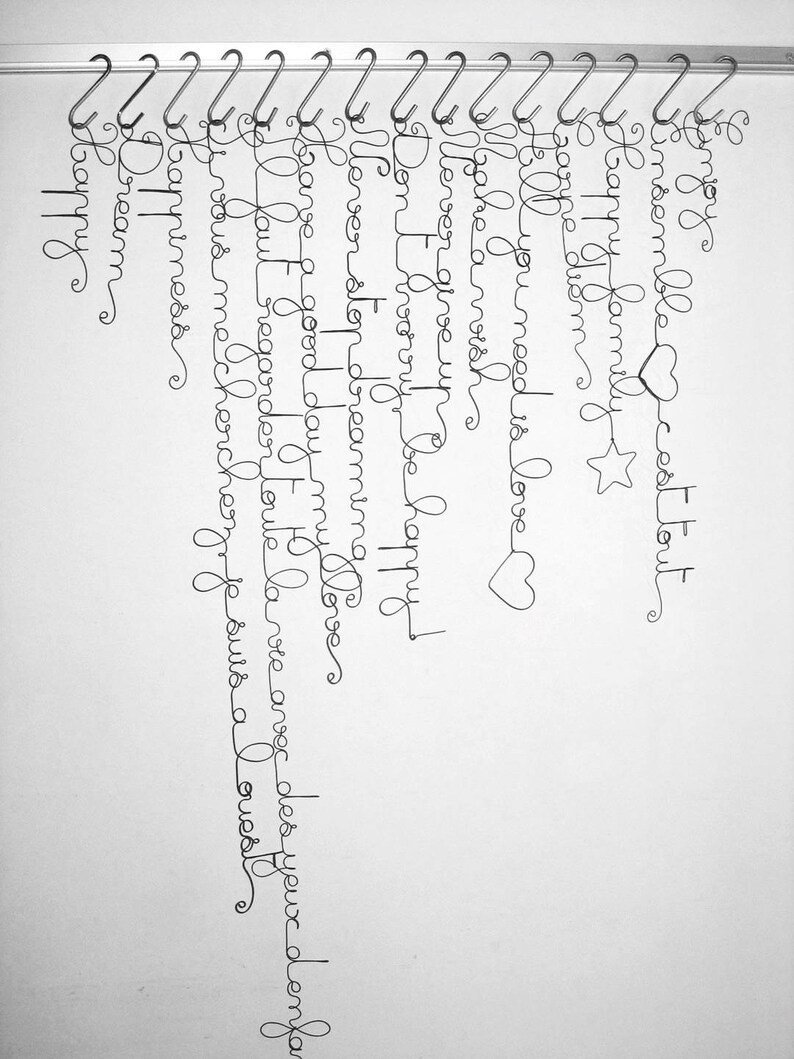 Happy
Dream
Happiness
Si vous me cherchez je suis a louest
Il faut regarder toute la vie avec des yeux denfa
Have a good day my love
Never stop dreaming
Dont worry be happy !
Never give up
Make a wish
All you need is love
Carpe diem
Happy family
ensemble cest tout
Enjoy